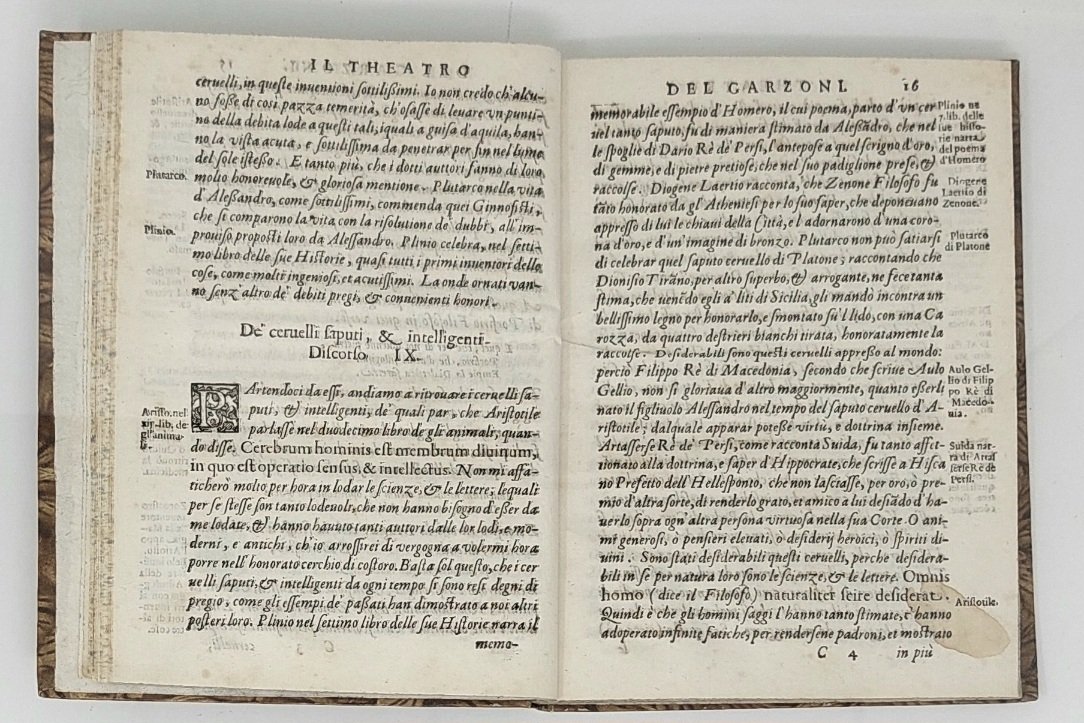 IL THEATRO
ceruelli, in queste inuentioni sottilißimi. Io non credo ch'alcu-
no foße di così pazza temerità, ch'osaße di leuare vn punti-
no della debita lode a questi tali, iquali a guisa d'aquila, han-
no la vista acuta, e sottilissima da penetrar per fin nel lume
del sole istesso. E tanto più, che i dotti auttori fanno di loro
molto honoreuole, & gloriosa mentione. Plutarco nella vita
Plutarco.
d'Aleßandro, come sottilissimi, commenda quei Ginnosofisti,
che si comparono la vita con la risolutione de' dubbi, all'im-
Plinio.
prouiso proposti loro da Alessandro. Plinio celebra, nel setti-
mo libro delle sue Historie, quasi tutti i primi inuentori delle
cose, come molti ingeniosi, et acutissimi. La onde ornati van-
no senz'altro de' debiti pregi, & conuenienti honori.
De' ceruelli saputi, & intelligenti.
Discorso IX.
PArtendoci da essi, andiamo a ritrouare i ceruelli sa-
puti, & intelligenti, de' quali par, che Aristotile
parlasse nel duodecimo libro de gli animali, quan-
Aristo. nel
xij. lib. de
gl'anima-
li.
do disse. Cerebrum hominis est membrum diuinum,
in quo est operatio sensus, & intellectus. Non mi affa-
ticherò molto per hora in lodar le scienze, & le lettere, lequali
per se stesse son tanto lodeuoli, che non hanno bisogno d'eßer da
me lodate, & hanno hauuto tanti auttori dalle lor lodi, e mo-
derni, e antichi, ch'io arrossirei di vergogna a volermi hora
porre nell'honorato cerchio di costoro. Basta sol questo, che i cer
uelli saputi, & intelligenti da ogni tempo si sono resi degni di
pregio, come gli essempi de' paßati han dimostrato a noi altri
posteri loro. Plinio nel settimo libro delle sue Historie narra il
C 3 memo-
DEL GARZONI. 16
memorabile essempio d'Homero, il cui poema, parto d'vn cer
uel tanto saputo, fu di maniera stimato da Aleßãdro, che nel
le spoglie di Dario Rè de' Persi, l'antepose a quel scrigno d'oro,
di gemme, e di pietre pretiose, che nel suo padiglione prese, &
raccolse. Diogene Laertio racconta, che Zenone Filosofo fu
Plinio ne
7. lib. delle
sue histo-
rie narra
del poema
d'Homero
Diogene
Laertio di
Zenone.
tãto honorato da gl'Atheniesi per lo suo saper, che deponeuano
appresso di lui le chiaui della Città, e l'adornarono d'una coro-
na d'oro, e d'un'imagine di bronzo. Plutarco non può satiarsi
di celebrar quel saputo ceruello di Platone; raccontando che
Plutarco
di Platone
Dionisio Tirãno, per altro superbo, & arrogante, ne fece tanta
stima, che uenẽdo egli a' liti di Sicilia, gli mandò incontra un
bellissimo legno per honorarlo, e smontato sù'l lido, con una Ca
rozza, da quattro destrieri bianchi tirata, honoratamente la
raccolse. Desiderabili sono questi ceruelli appreßo al mondo:
perciò Filippo Rè di Macedonia, secondo che scriue Aulo
Gellio, non si gloriaua d'altro maggiormente, quanto eßerli
nato il figliuolo Alessandro nel tempo del saputo ceruello d'A-
ristotile; dalquale apparar poteße virtù, e dottrina insieme.
Aulo Gel-
lio di Filip
po Rè di
Macedo-
nia.
Artasserse Rè de' Persi, come racconta Suida, fu tanto affet-
tionato alla dottrina, e saper d'Hippocrate, che scrisse a Hisca
no Prefetto dell'Hellesponto, che non lasciasse, per oro, ò pre-
mio d'altra sorte, di renderlo grato, et amico a lui desiãdo d'ha-
uerlo sopra ogn'altra persona virtuosa nella sua Corte. O ani-
Suida nar-
ra di Artas
serse Rè de
Persi.
mi generosi, ò pensieri eleuati, ò desiderij heroici, ò spiriti di-
uini. Sono stati desiderabili questi ceruelli, perche desidera-
bili in se per natura loro sono le scienze, & le lettere. Omnis
homo (dice il Filosofo) naturaliter scire desiderat.
Aristotile.
Quindi è che gli homini saggi l'hanno tanto stimate, e hanno
adoperato infinite fatiche, per rendersene padroni, et mostrato
C 4 in più